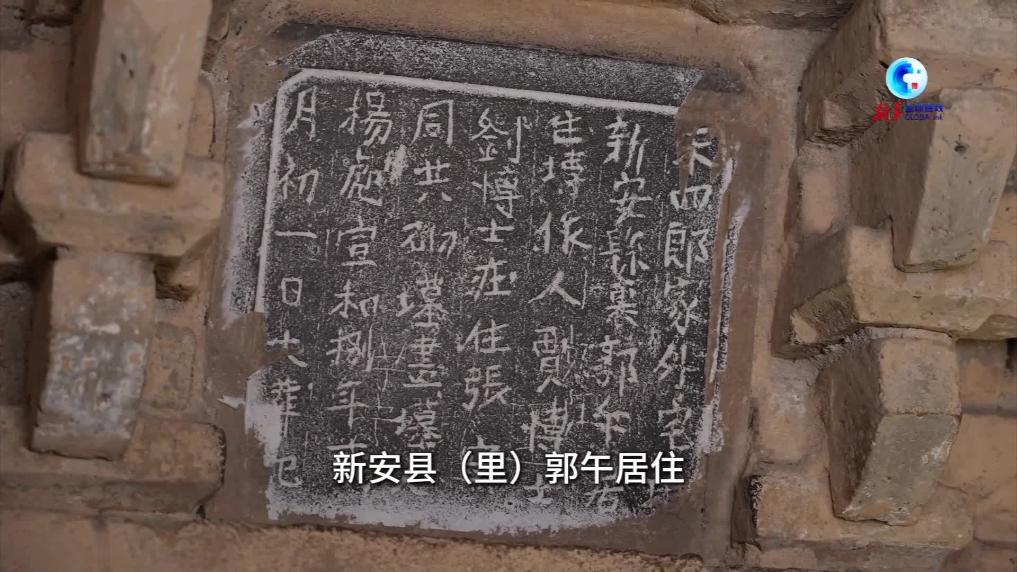 宋四郎家外宅
新安縣裹郭午居
住塼作人賈博士
劉博士在住張
同共砌墓畫墓
楊處宣和捌年
月初一日大葬記
新安县（里）郭午居住
GLOBALink